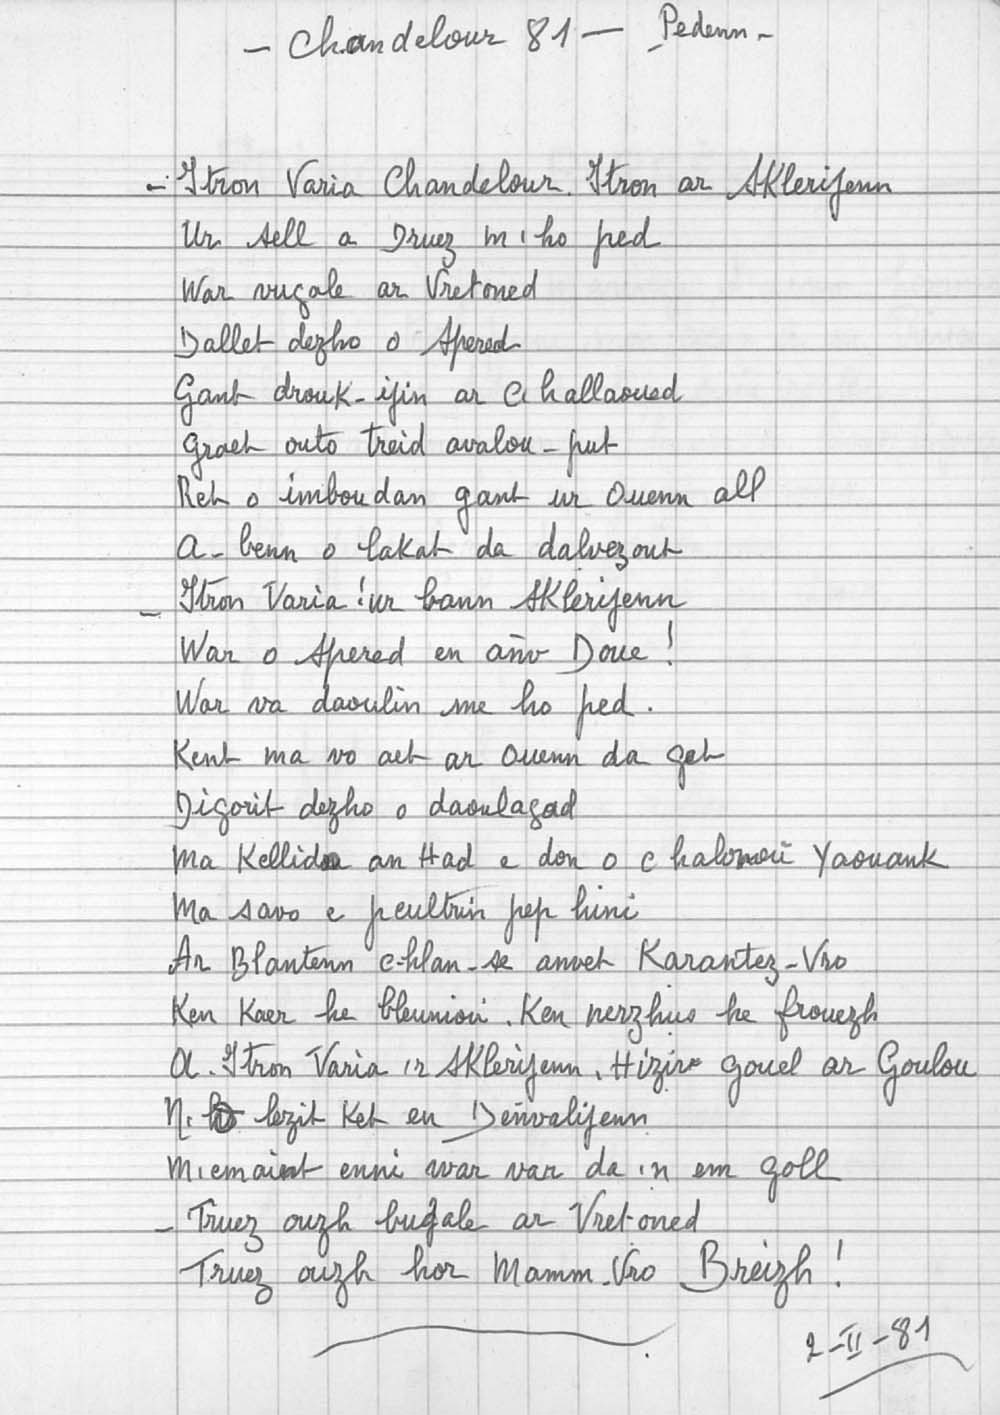 - Chandelour 81 - Pedenn -
- Itron Varia Chandelour. Itron ar Sklerijenn
Ur sell a Druez m'ho ped
War vugale ar Vretoned
Dallet dezho o Spered
Gant drouk-ijin ar C'hallaoued
Graet outo treid avalou-put
Ret o imboudan gant ur Ouenn all
A-benn o lakat da dalvezout
- Itron Varia! ur bann Sklerijenn
War o Spered en anv Doue!
War va daoulin me ho ped.
Kent ma vo aet ar Ouenn da get
Digorit dezho o daoulagad
Ma Kellido an Had e don o c'halonoù Yaouank
Ma savo e peultrin pep hini
Ar Blantenn c'hlan-se anvet Karantez-Vro
Ken Kaer he bleuniou. Ken nerzhus he frouezh
A. Itron Varia 'r Sklerijenn, Hizir gouel ar Goulou
N' ho lezit ket en Deñvalijenn
M'emaint enni war var da 'n em goll
- Truez ouzh bugale ar Vretoned
Truez ouzh hor Mamm-Vro Breizh!
2-II-81